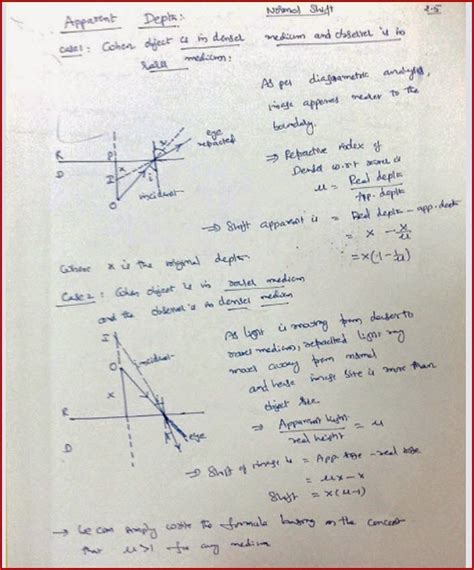 Apparent Depth: Normal Shift 2.5
Case 1: When object is in denser medium and observer is in
rarer medium:
As per diagrammatic analysis,
image appears nearer to the
boundary.
eye
refracted
R
D
P
I
O
x
i
incident
⇒ Refractive index of
Denser w.r.t rarer is
μ = Real depth / App. depth
⇒ Shift apparent is = Real depth - app. depth
= x - x/μ
= x(1 - 1/μ)
Where x is the original depth
Case 2: When object is in rarer medium
and the observer is in denser medium
I
O
x
R
D
incident
i
eye
As light is moving from denser to
rarer medium, refracted light ray
moves away from normal
and hence image size is more than
object size.
⇒ Apparent height / real height = μ
⇒ Shift of image is = App size - real size
= μx - x
Shift = x(μ-1)
→ We can simply write the formula basing on the concept
that μ>1 for any medium